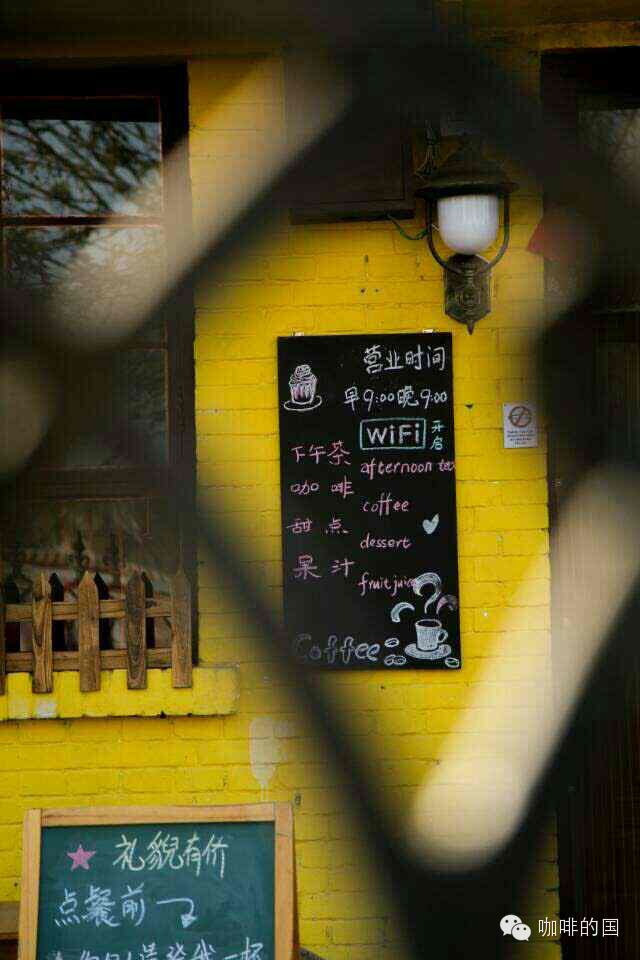 营业时间
早9:00晚9:00
WiFi 开启
下午茶 afternoon tea
咖啡 coffee
甜点 dessert
果汁 fruit juice
Coffee
礼貌有价
点餐前
一杯
咖啡的国